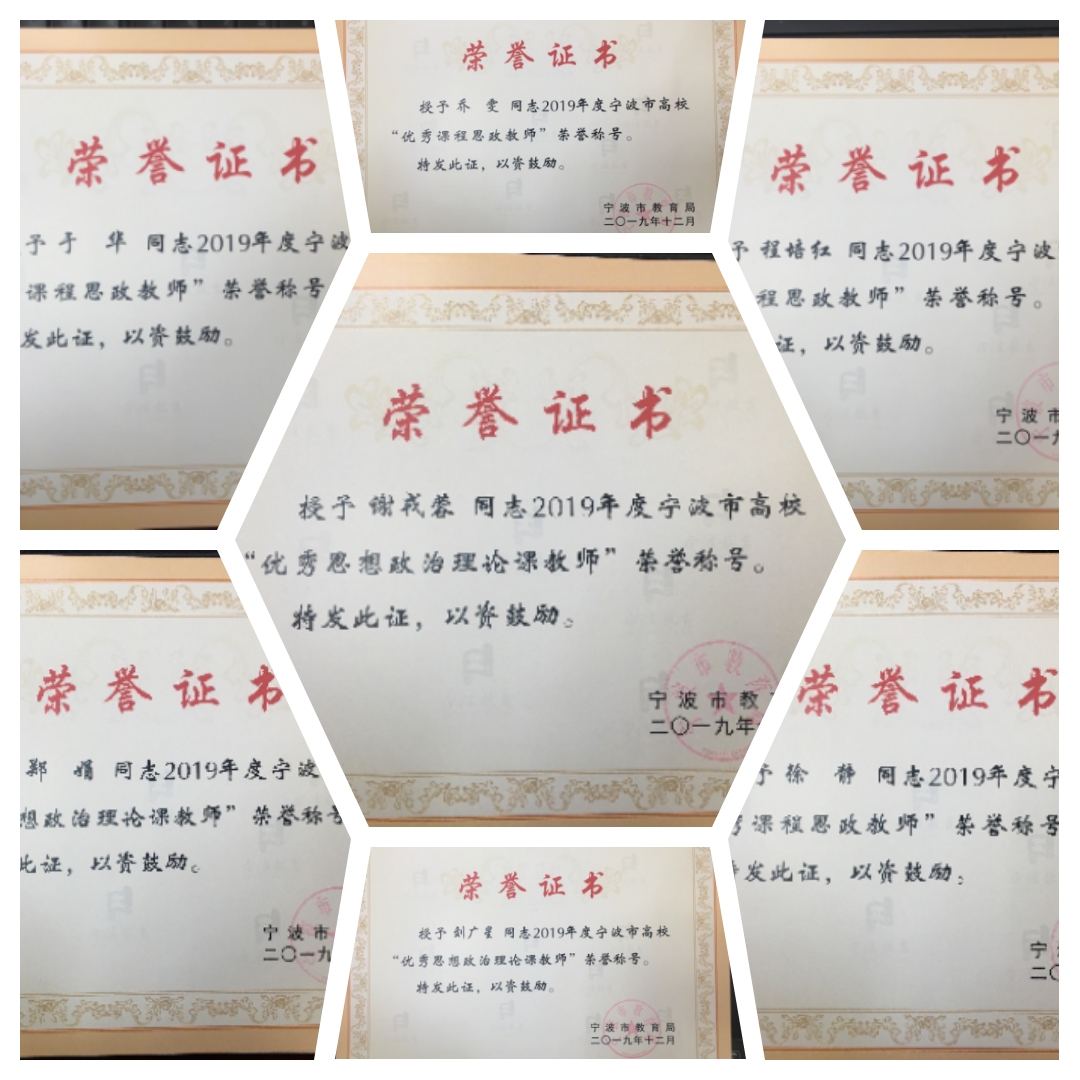 荣誉证书
予于 华 同志2019年度宁波
课程思政教师”荣誉称号
发此证，以资鼓励。
荣誉证书
授予乔 雯 同志2019年度宁波市高校
“优秀课程思政教师”荣誉称号。
特发此证，以资鼓励。
宁波市教育局
二〇一九年十二月
荣誉证书
予程培红 同志2019年度宁波
程思政教师”荣誉称号。
证，以资鼓励。
宁波市
二〇一九
荣誉证书
授予谢戎蓉 同志2019年度宁波市高校
“优秀思想政治理论课教师”荣誉称号。
特发此证，以资鼓励。
宁波市教
二〇一九年
荣誉证书
郑 娟 同志2019年度宁波
想政治理论课教师”荣誉称号
此证，以资鼓励。
宁波市
二〇一九
荣誉证书
授予刘广星 同志2019年度宁波市高校
“优秀思想政治理论课教师”荣誉称号。
特发此证，以资鼓励。
宁波市教育局
二〇一九年十二月
荣誉证书
予徐 静 同志2019年度宁
秀课程思政教师”荣誉称号
发此证，以资鼓励。
宁
二〇